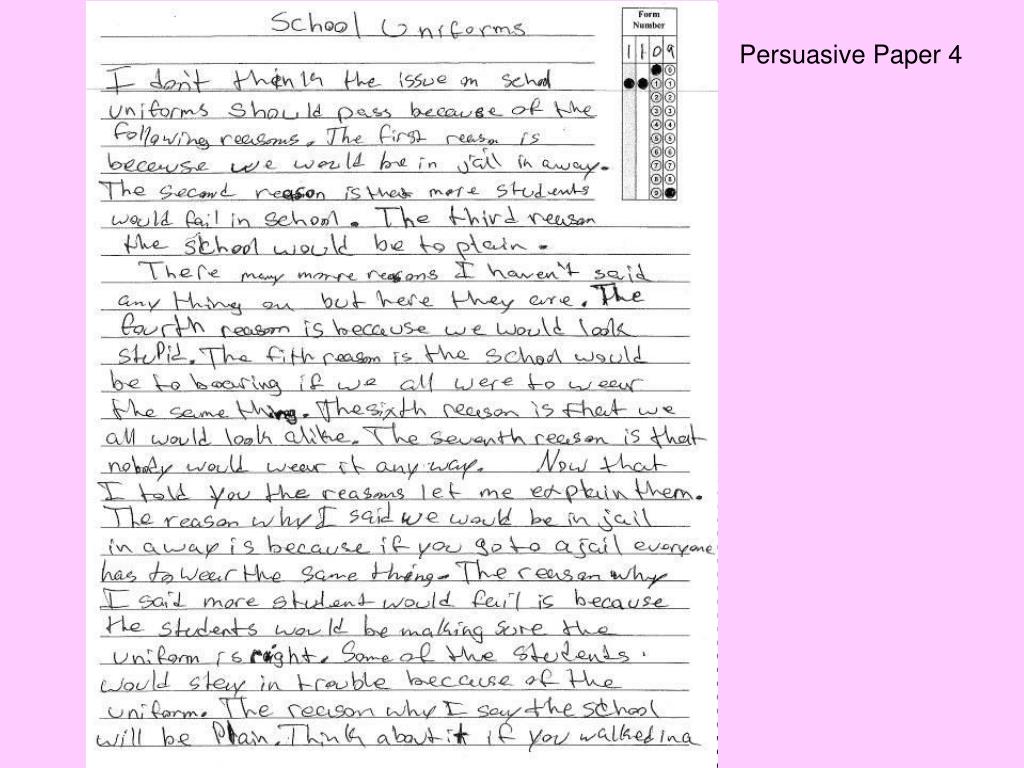 School Uniforms
Form
Number
1 1 0 9
Persuasive Paper 4
I don't think the issue on school
uniforms should pass because of the
following reasons. The first reason is
because we would be in jail in away.
The second reason is that more students
would fail in school. The third reason
the school would be to plain.
There many more reasons I haven't said
any thing on but here they are. The
fourth reason is because we would look
stupid. The fith reason is the school would
be to booring if we all were to wear
the same thing. The sixth reason is that we
all would look alike. The seventh reason is that
nobody would wear it any way. Now that
I told you the reasons let me explain them.
The reason why I said we would be in jail
in away is because if you go to a jail everyone
has to wear the same thing. The reason why
I said more student would fail is because
the students would be making sure the
uniform is right. Some of the students
would stey in trouble because of the
uniform. The reason why I say the school
will be Plain. Think about it if you walked in a